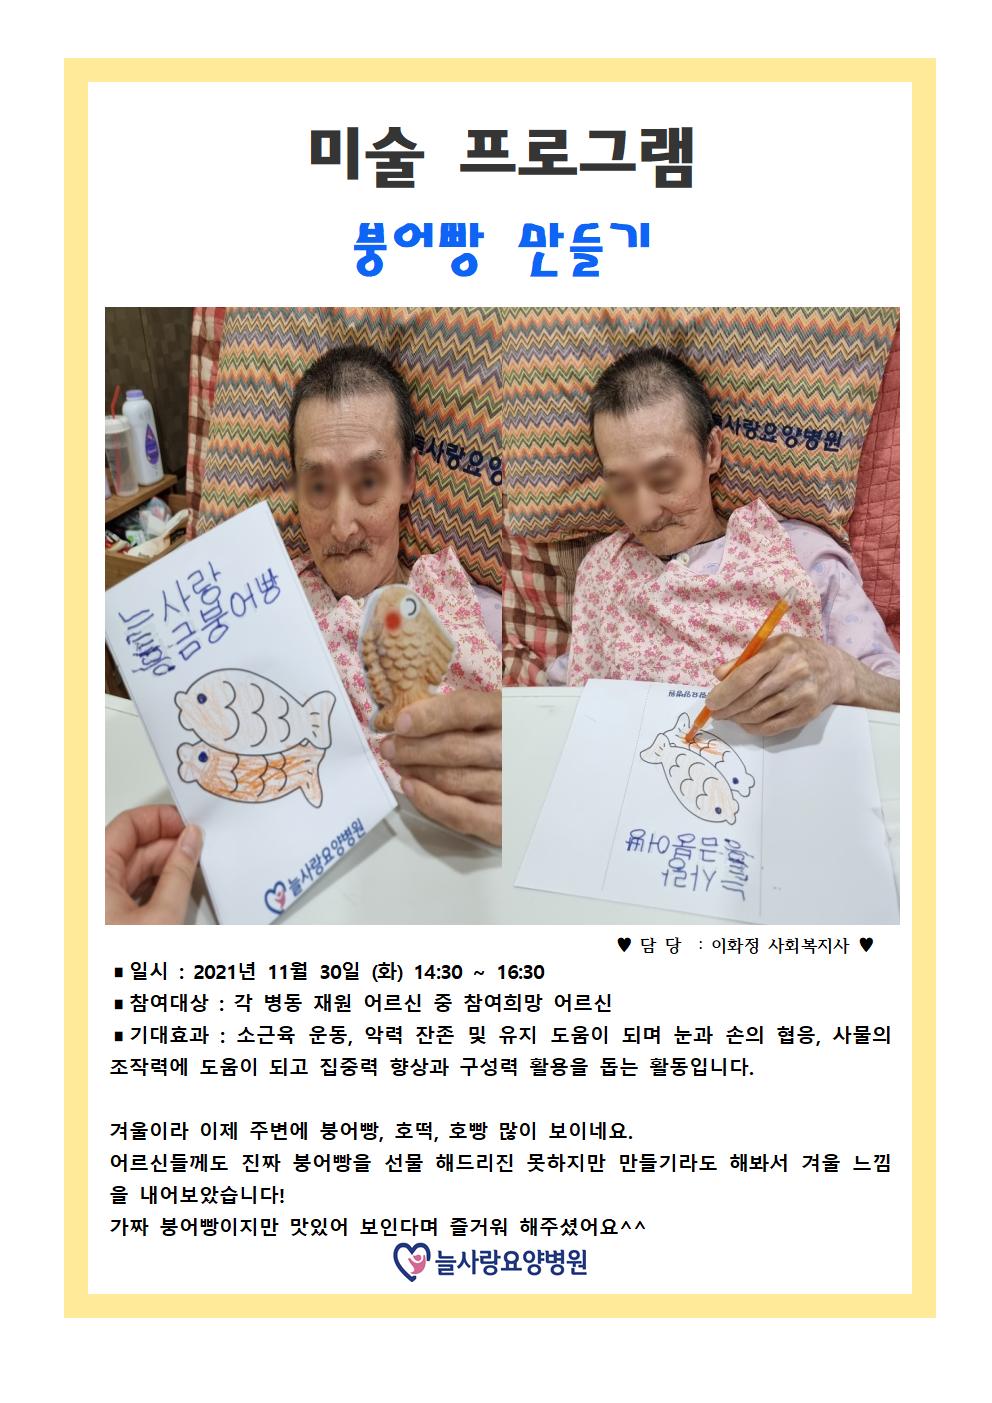 미술 프로그램
붕어빵 만들기
늘사랑요양
늘사랑요양병원
사랑
금붕어빵
늘사랑요양병원
♥ 담 당 : 이화정 사회복지사 ♥
■ 일시 : 2021년 11월 30일 (화) 14:30 ~ 16:30
■ 참여대상 : 각 병동 재원 어르신 중 참여희망 어르신
■ 기대효과 : 소근육 운동, 악력 잔존 및 유지 도움이 되며 눈과 손의 협응, 사물의
조작력에 도움이 되고 집중력 향상과 구성력 활용을 돕는 활동입니다.
겨울이라 이제 주변에 붕어빵, 호떡, 호빵 많이 보이네요.
어르신들께도 진짜 붕어빵을 선물 해드리진 못하지만 만들기라도 해봐서 겨울 느낌
을 내어보았습니다!
가짜 붕어빵이지만 맛있어 보인다며 즐거워 해주셨어요^^
늘사랑요양병원